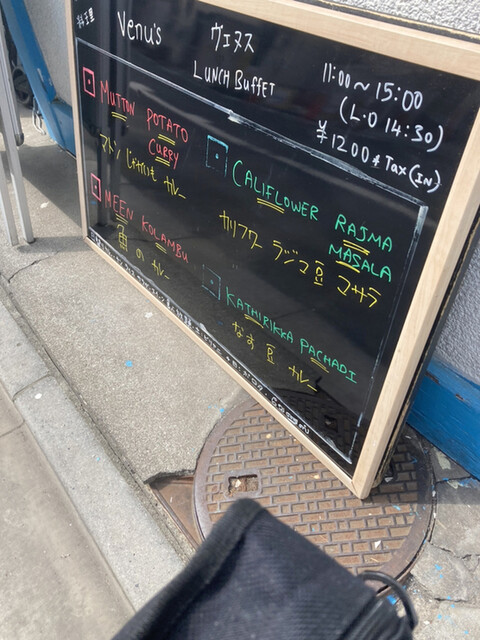 Venu's ヴェヌス
LUNCH BUFFET
11:00～15:00
(L:O 14:30)
¥1200 Tax(IN)
MUTTON POTATO
CURRY
マトン じゃがいも カレー
MEEN KOLAMBU
魚 の カレー
CALIFLOWER RAJMA
MASALA
カリフワー ラジマ豆 マサラ
KATHIRIKKA PACHADI
なす 豆 カレー